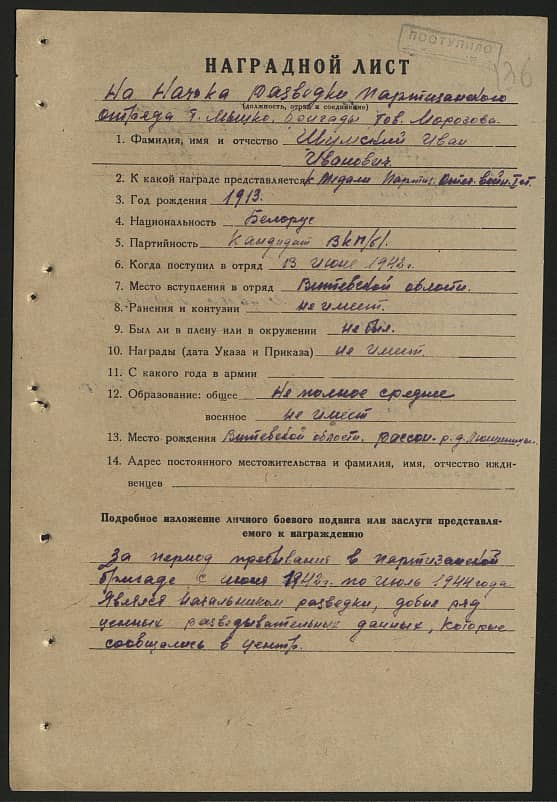 ПОСТУПИЛО
26
НАГРАДНОЙ ЛИСТ
На Нач-ка разведки партизанского
(должность, отряд и соединение)
отряда т. Мышко, бригады тов. Морозова.
1. Фамилия, имя и отчество Шумский Иван
Иванович.
2. К какой награде представляется к медали Партиз. Отеч. войн. I ст.
3. Год рождения 1913.
4. Национальность Белорус
5. Партийность Кандидат ВКП/б/.
6. Когда поступил в отряд 13 июня 1942 г.
7. Место вступления в отряд Витебской области.
8. Ранения и контузии не имеет.
9. Был ли в плену или в окружении не был.
10. Награды (дата Указа и Приказа) не имеет.
11. С какого года в армии
12. Образование: общее Не полное среднее
военное не имеет
13. Место рождения Витебской области. рассон. р. д.
14. Адрес постоянного местожительства и фамилия, имя, отчество ижди-
венцев
Подробное изложение личного боевого подвига или заслуги представля-
емого к награждению
За период пребывания в партизанской
бригаде с июня 1942 г. по июль 1944 года
являлся начальником разведки, добыл ряд
ценных разведывательных данных, которые
сообщались в центр.